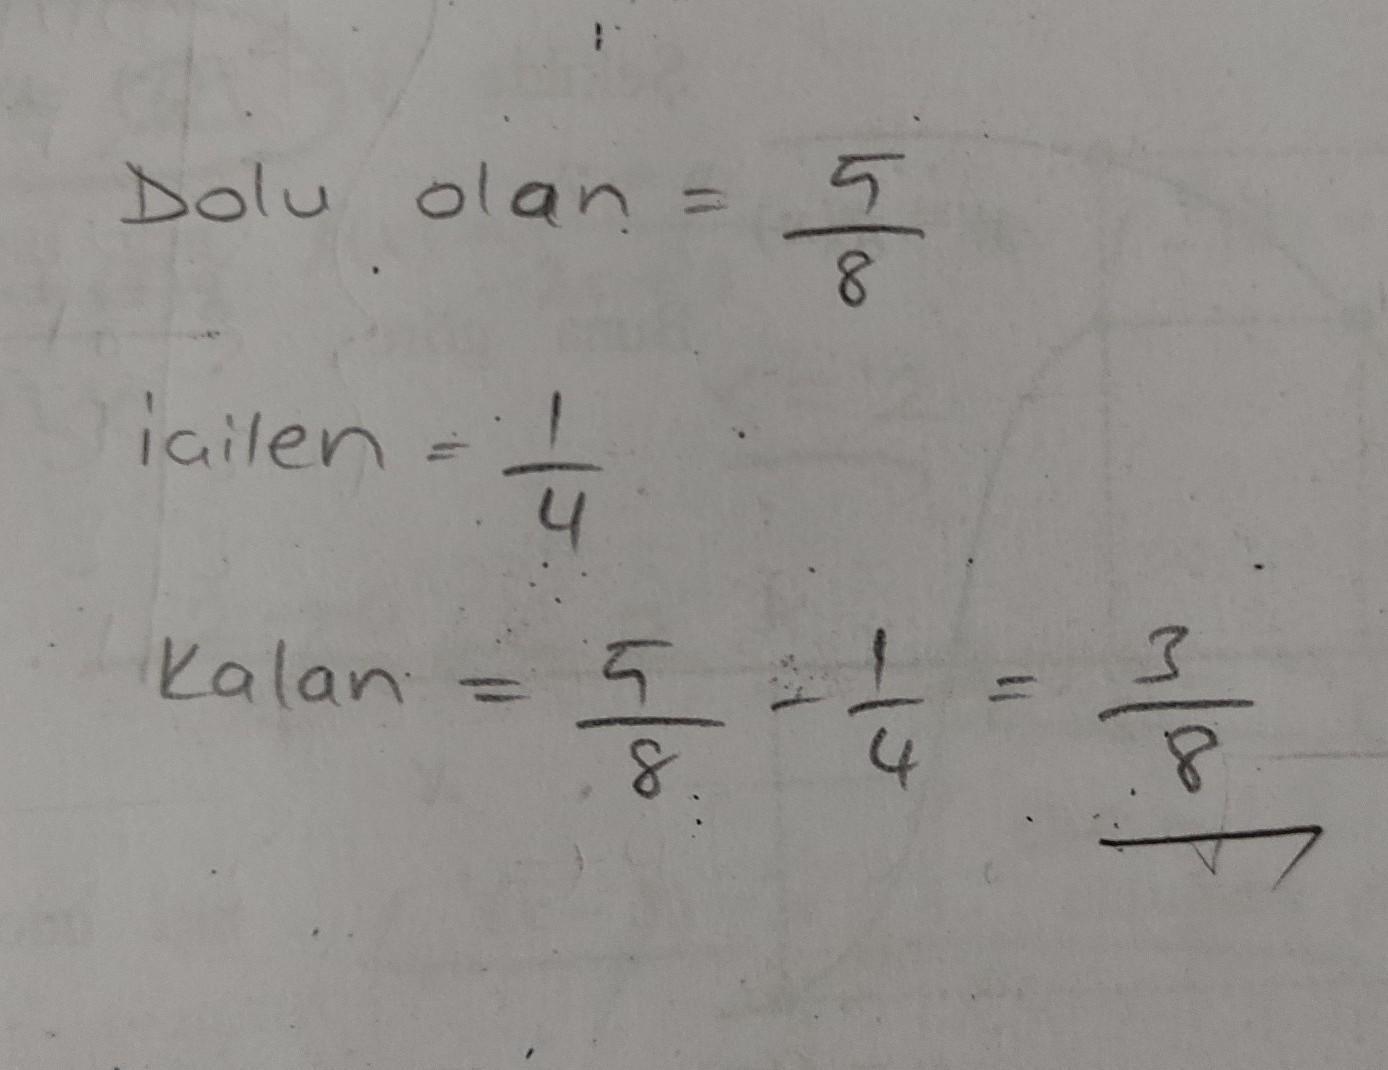 Dolu olan = 5/8
içilen = 1/4
Kalan = 5/8 - 1/4 = 3/8